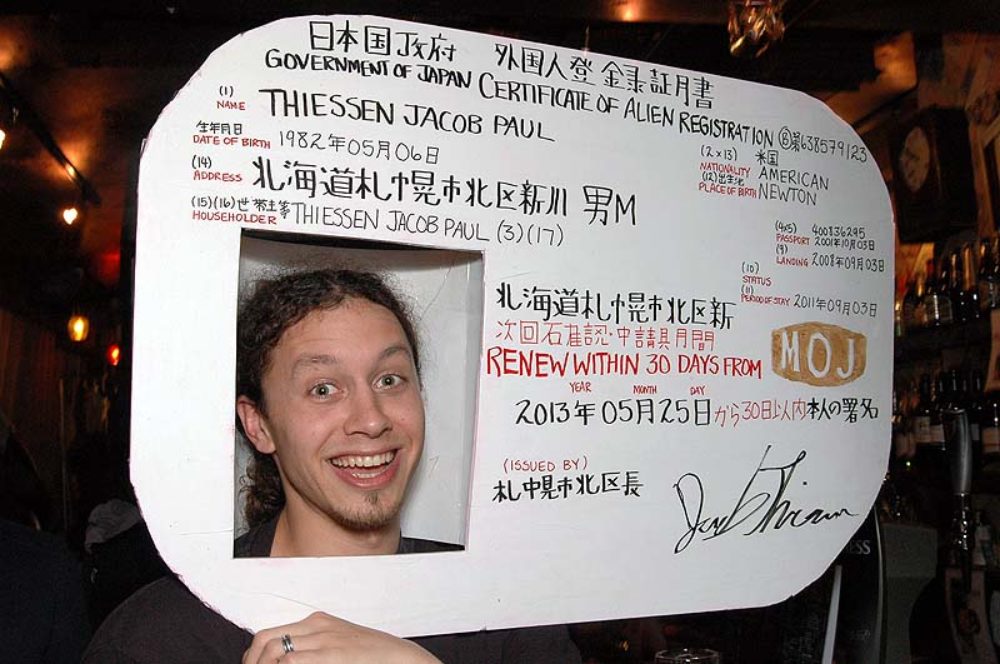 日本国政府 外国人登録証明書
GOVERNMENT OF JAPAN CERTIFICATE OF ALIEN REGISTRATION Ⓑ第638579123
(1)
NAME THIESSEN JACOB PAUL
生年月日
DATE OF BIRTH 1982年05月06日
(2×13) 米国
NATIONALITY AMERICAN
(12)出生地
PLACE OF BIRTH NEWTON
(14)
ADDRESS 北海道札幌市北区新川 男M
(15)(16)世帯主等
HOUSEHOLDER THIESSEN JACOB PAUL (3)(17)
(4×5) 400836295
PASSPORT 2001年10月03日
(9)
LANDING 2008年09月03日
(10)
STATUS
(11)
PERIOD OF STAY 2011年09月03日
北海道札幌市北区新
次回確認・申請期間
RENEW WITHIN 30 DAYS FROM
MOJ
YEAR MONTH DAY
2013年05月25日から30日以内本人の署名
(ISSUED BY)
札幌市北区長
ESS